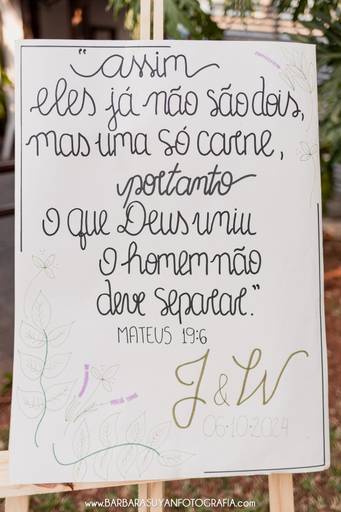 "assim
eles já não são dois,
mas uma só carne,
portanto
o que Deus uniu
o homem não
deve separar."
MATEUS 19:6
J & W
06·10·2024
WWW.BARBARASUYANFOTOGRAFIA.COM